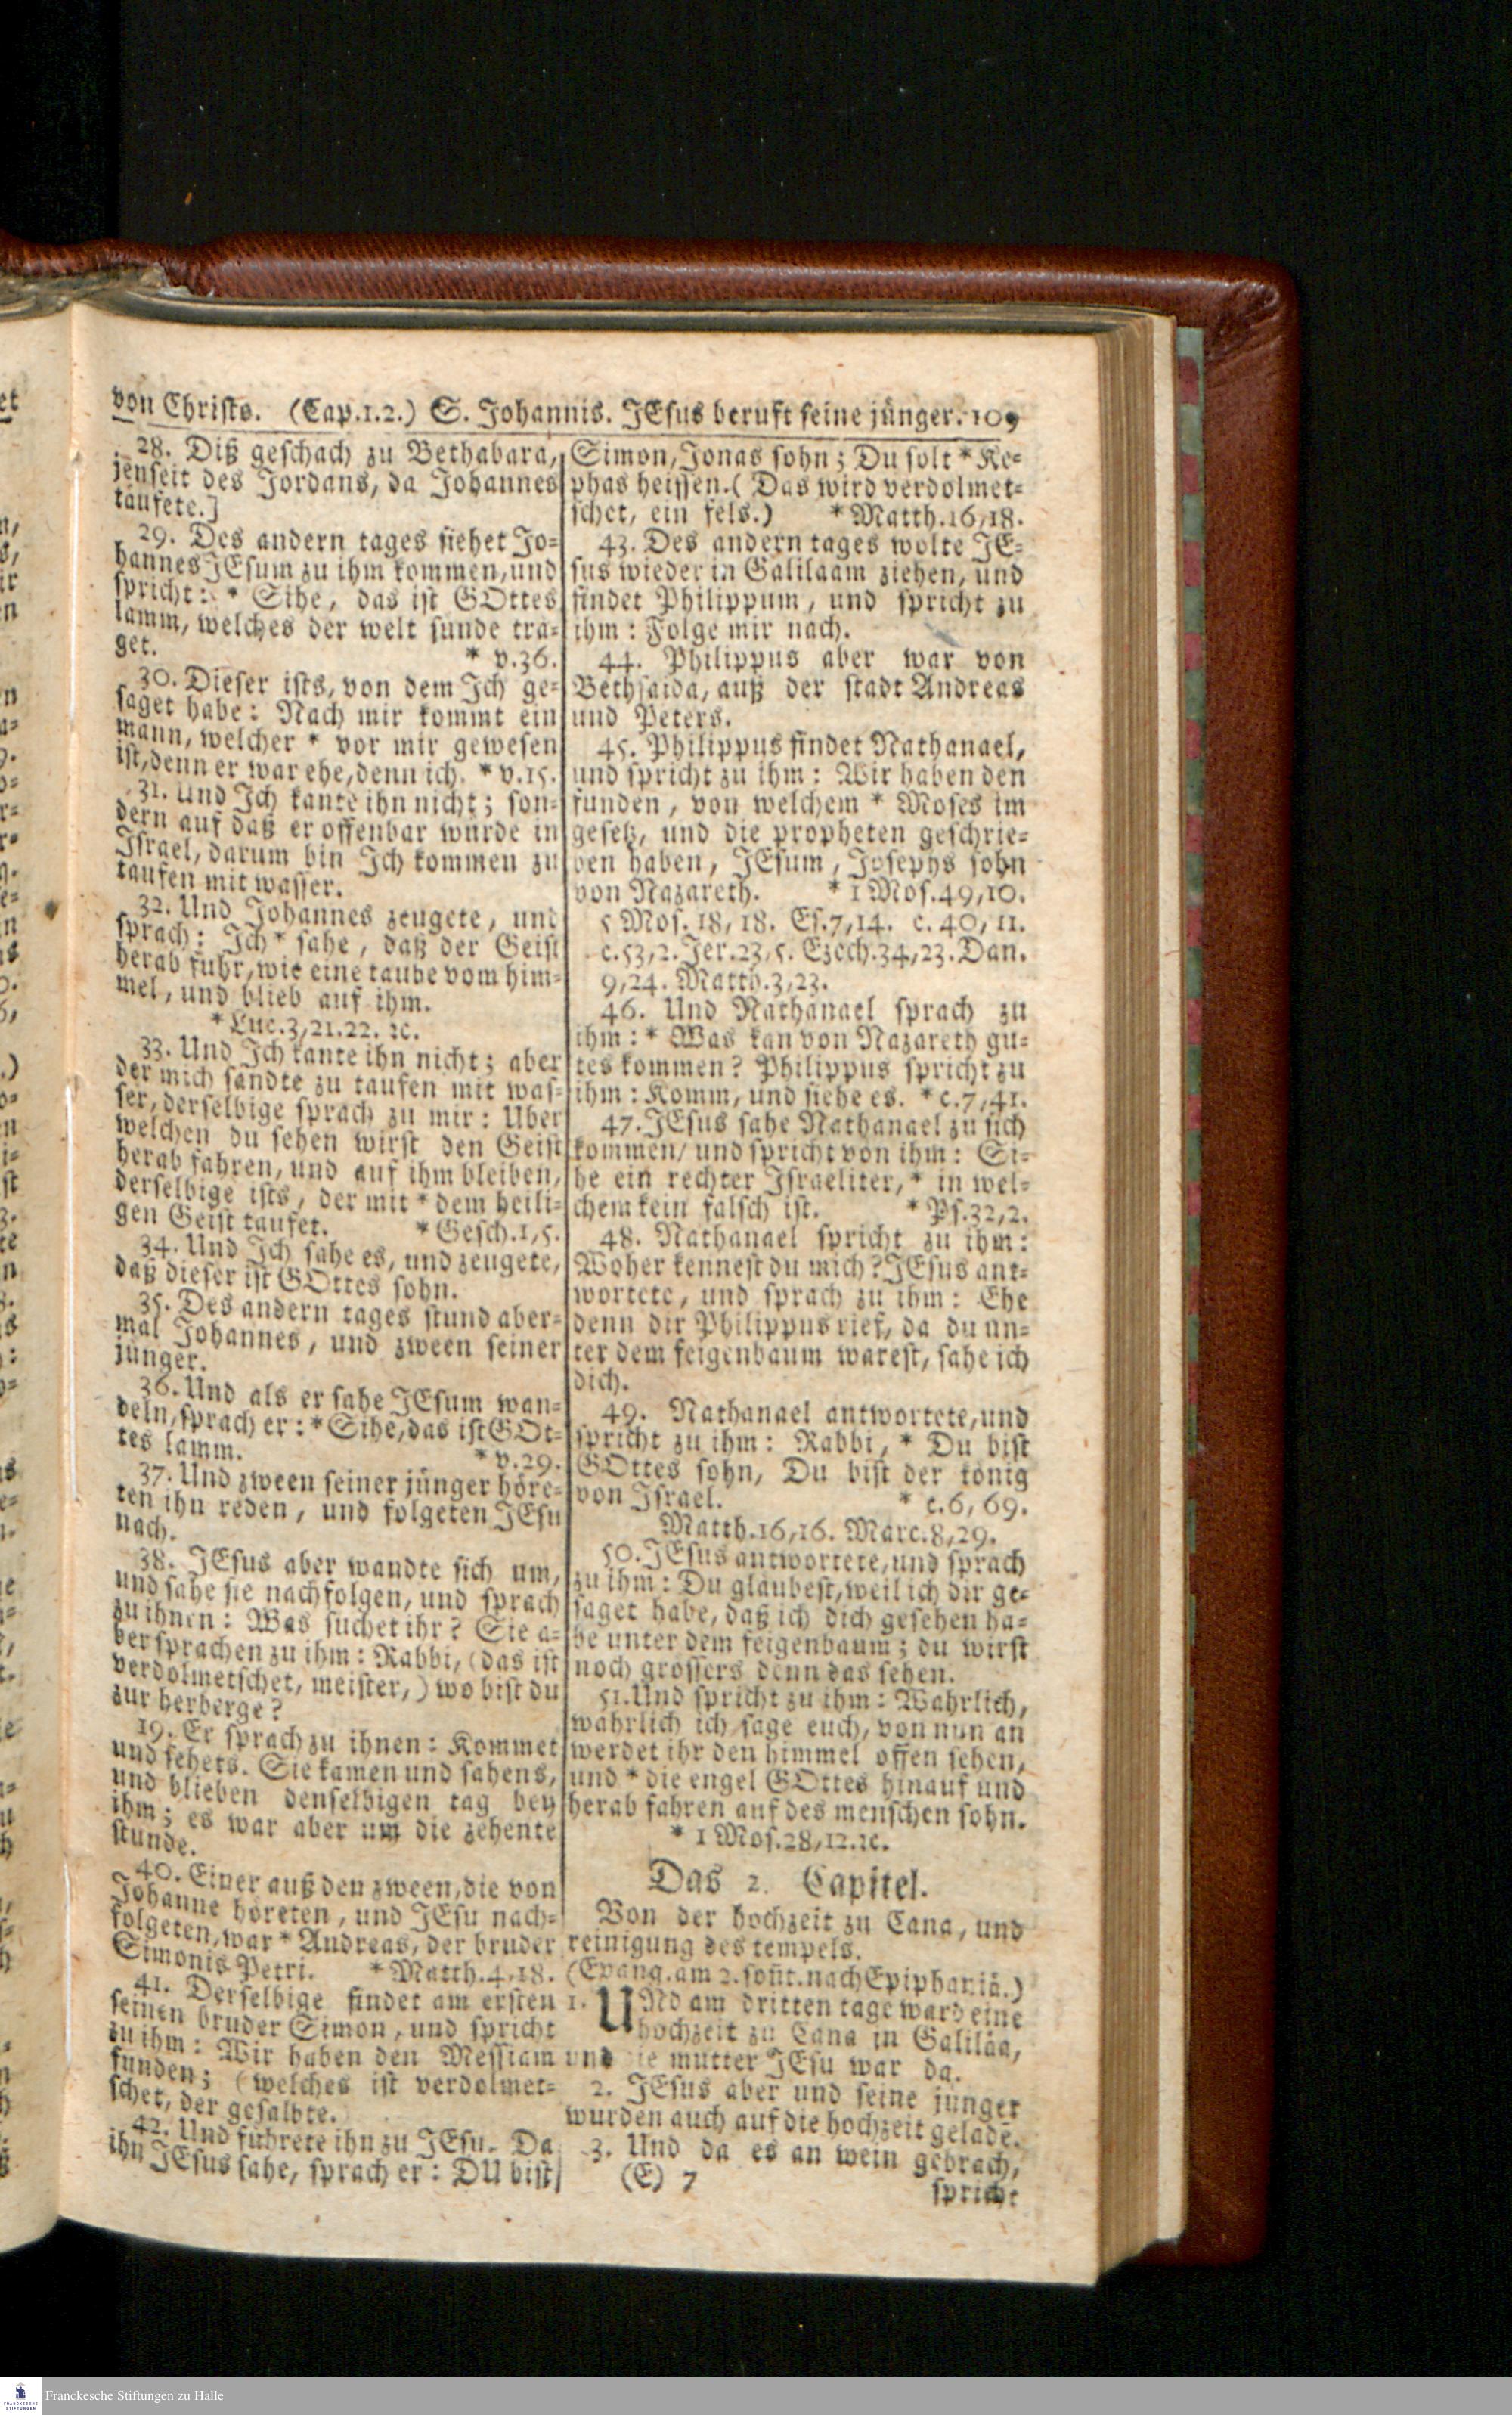 von Christo. (Cap.1.2.) S. Johannis. JEsus beruft seine jünger. 109
28. Diß geschach zu Bethabara,
jenseit des Jordans, da Johannes
täufete.]
29. Des andern tages siehet Jo-
hannes JEsum zu ihm kommen, und
spricht: * Sihe, das ist GOttes
lamm, welches der welt sünde trä-
get. * v.36.
30. Dieser ists, von dem Ich ge-
saget habe: Nach mir kommt ein
mann, welcher * vor mir gewesen
ist, denn er war ehe, denn ich. * v.15.
31. Und Ich kante ihn nicht; son-
dern auf daß er offenbar würde in
Israel, darum bin Ich kommen zu
taufen mit wasser.
32. Und Johannes zeugete, und
sprach: Ich * sahe, daß der Geist
herab fuhr, wie eine taube vom him-
mel, und blieb auf ihm.
* Luc.3,21.22. ꝛc.
33. Und Ich kante ihn nicht; aber
der mich sandte zu taufen mit was-
ser, derselbige sprach zu mir: Uber
welchen du sehen wirst den Geist
herab fahren, und auf ihm bleiben,
derselbige ists, der mit * dem heili-
gen Geist taufet. * Gesch.1,5.
34. Und Ich sahe es, und zeugete,
daß dieser ist GOttes sohn.
35. Des andern tages stund aber-
mal Johannes, und zween seiner
jünger.
36. Und als er sahe JEsum wan-
deln, sprach er: * Sihe, das ist GOt-
tes lamm. * v.29.
37. Und zween seiner jünger höre-
ten ihn reden, und folgeten JEsu
nach.
38. JEsus aber wandte sich um,
und sahe sie nachfolgen, und sprach
zu ihnen: Was suchet ihr? Sie a-
ber sprachen zu ihm: Rabbi, (das ist
verdolmetschet, meister,) wo bist du
zur herberge?
19. Er sprach zu ihnen: Kommet
und sehets. Sie kamen und sahens,
und blieben denselbigen tag bey
ihm; es war aber um die zehente
stunde.
40. Einer auß den zween, die von
Johanne höreten, und JEsu nach-
folgeten, war * Andreas, der bruder
Simonis Petri. * Matth.4,18.
41. Derselbige findet am ersten
seinen bruder Simon, und spricht
zu ihm: Wir haben den Messiam
funden; (welches ist verdolmet-
schet, der gesalbte.
42. Und führete ihn zu JEsu. Da
ihn JEsus sahe, sprach er: DU bist
Simon, Jonas sohn; Du solt * Ke-
phas heissen. (Das wird verdolmet-
schet, ein fels.) * Matth.16,18.
43. Des andern tages wolte JE-
sus wieder in Galiläam ziehen, und
findet Philippum, und spricht zu
ihm: Folge mir nach.
44. Philippus aber war von
Bethsaida, auß der stadt Andreas
und Peters.
45. Philippus findet Nathanael,
und spricht zu ihm: Wir haben den
funden, von welchem * Moses im
gesetz, und die propheten geschrie-
ben haben, JEsum, Josephs sohn
von Nazareth. * 1 Mos.49,10.
5 Mos. 18, 18. Es.7,14. c. 40, 11.
c.53,2. Jer.23,5. Ezech.34,23. Dan.
9,24. Matth.3,23.
46. Und Nathanael sprach zu
ihm: * Was kan von Nazareth gu-
tes kommen? Philippus spricht zu
ihm: Komm, und siehe es. * c.7,41.
47. JEsus sahe Nathanael zu sich
kommen/ und spricht von ihm: Si-
he ein rechter Israeliter, * in wel-
chem kein falsch ist. * Ps.32,2.
48. Nathanael spricht zu ihm:
Woher kennest du mich? JEsus ant-
wortete, und sprach zu ihm: Ehe
denn dir Philippus rief, da du un-
ter dem feigenbaum warest, sahe ich
dich.
49. Nathanael antwortete, und
spricht zu ihm: Rabbi, * Du bist
GOttes sohn, Du bist der könig
von Israel. * c.6, 69.
Matth.16,16. Marc.8,29.
50. JEsus antwortete, und sprach
zu ihm: Du gläubest, weil ich dir ge-
saget habe, daß ich dich gesehen ha-
be unter dem feigenbaum; du wirst
noch grössers denn das sehen.
51. Und spricht zu ihm: Wahrlich,
wahrlich ich sage euch, von nun an
werdet ihr den himmel offen sehen,
und * die engel GOttes hinauf und
herab fahren auf des menschen sohn.
* 1 Mos.28,12.ꝛc.
Das 2. Capitel.
Von der hochzeit zu Cana, und
reinigung des tempels.
(Evang. am 2. soñt. nach Epiphaniä.)
1. UNd am dritten tage ward eine
hochzeit zu Cana in Galiläa,
und die mutter JEsu war da.
2. JEsus aber und seine jünger
wurden auch auf die hochzeit geladē.
3. Und da es an wein gebrach,
(E) 7 spricht
Franckesche Stiftungen zu Halle